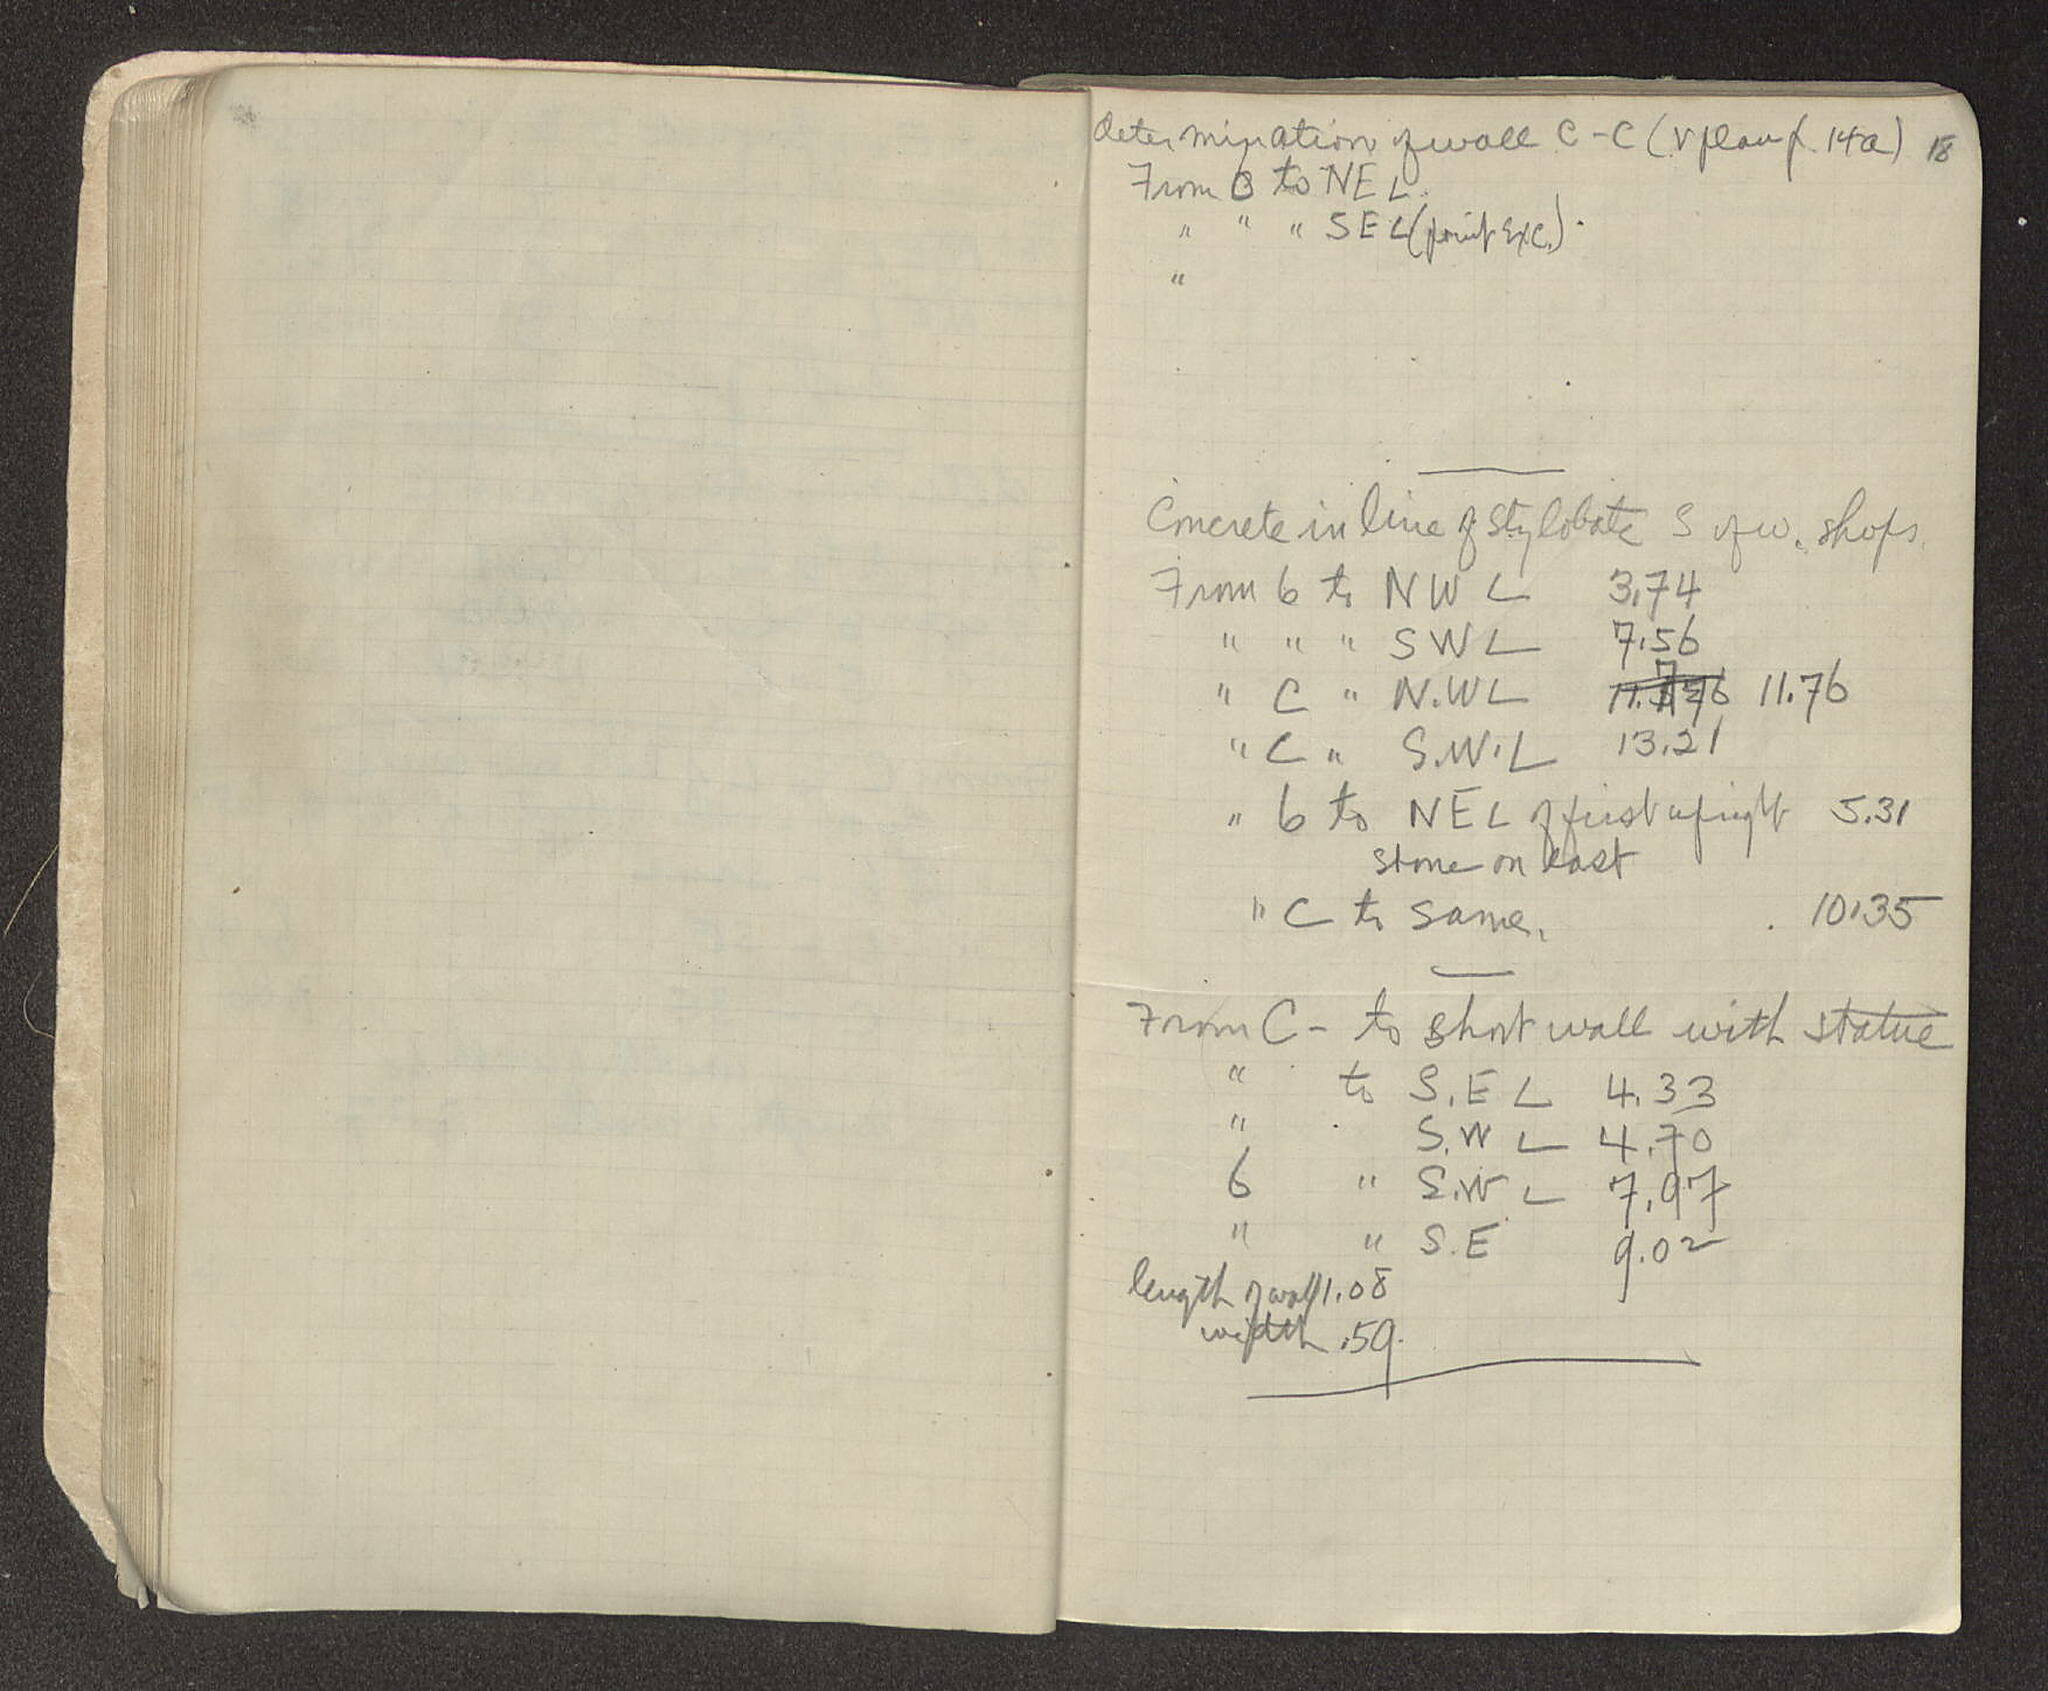 determination of wall C-C (v plan p. 14a) 18
From C to NE L
" " " SE L (point Exc.)
"
Concrete in line of stylobate S of W. shops
From 6 to NW L 3.74
" " " SW L 7.56
" C " N.W L 11.76
" C " S.W. L 13.21
" 6 to NE L of first upright 5.31
stone on east
" C to same. 10.35
From C - to short wall with statue
" to S.E L 4.33
" S.W L 4.70
6 " S.W L 7.97
" " S.E 9.02
length of wall 1.08
width .59.